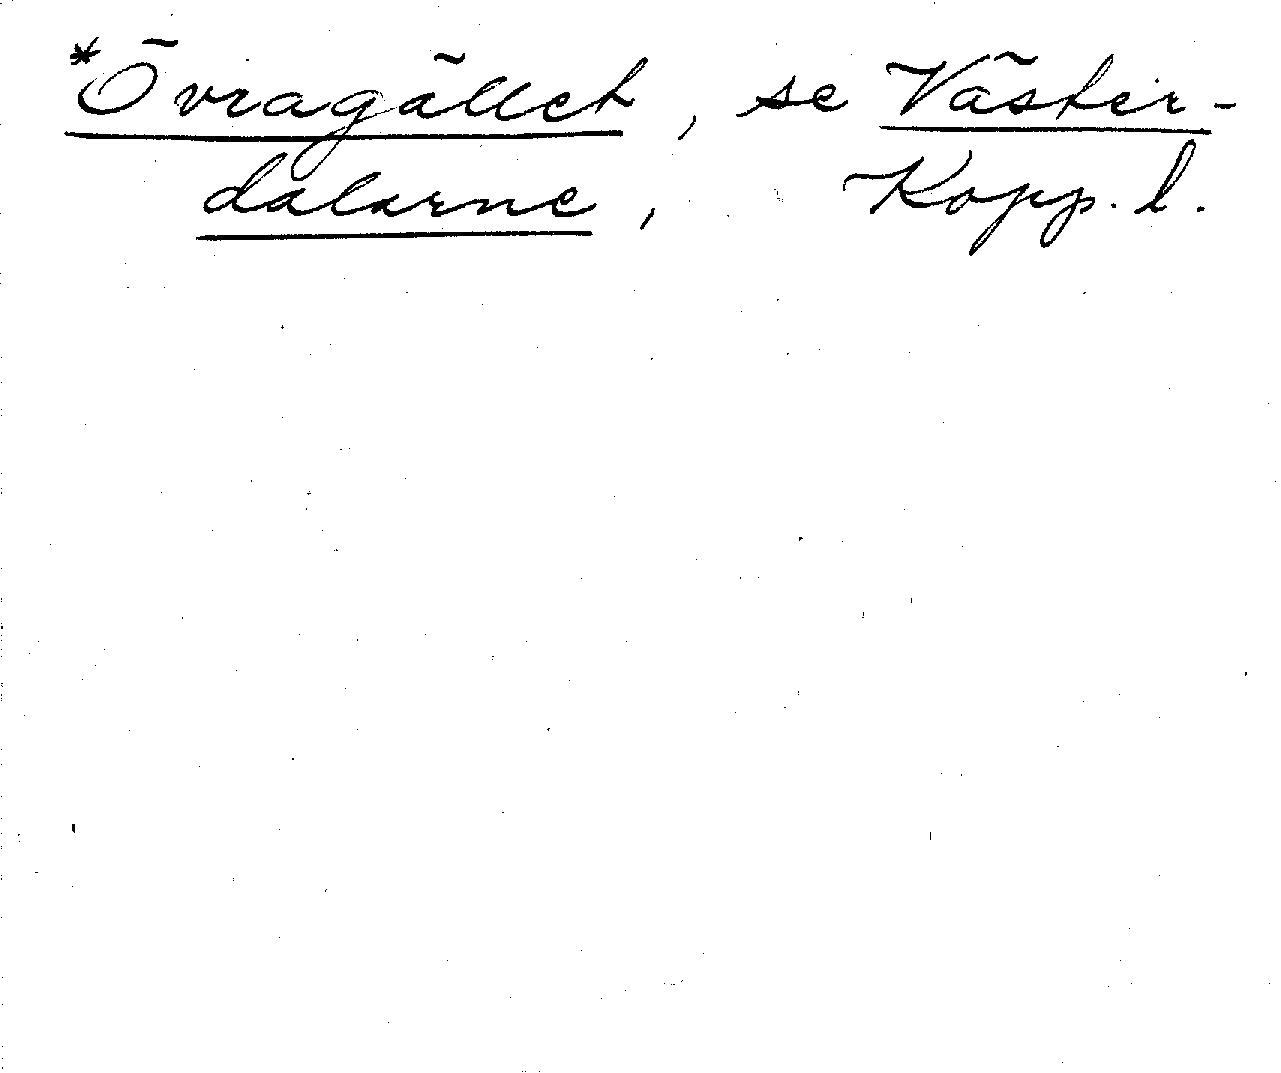 *Övragället, se Väster-
dalarne, Kopp. l.